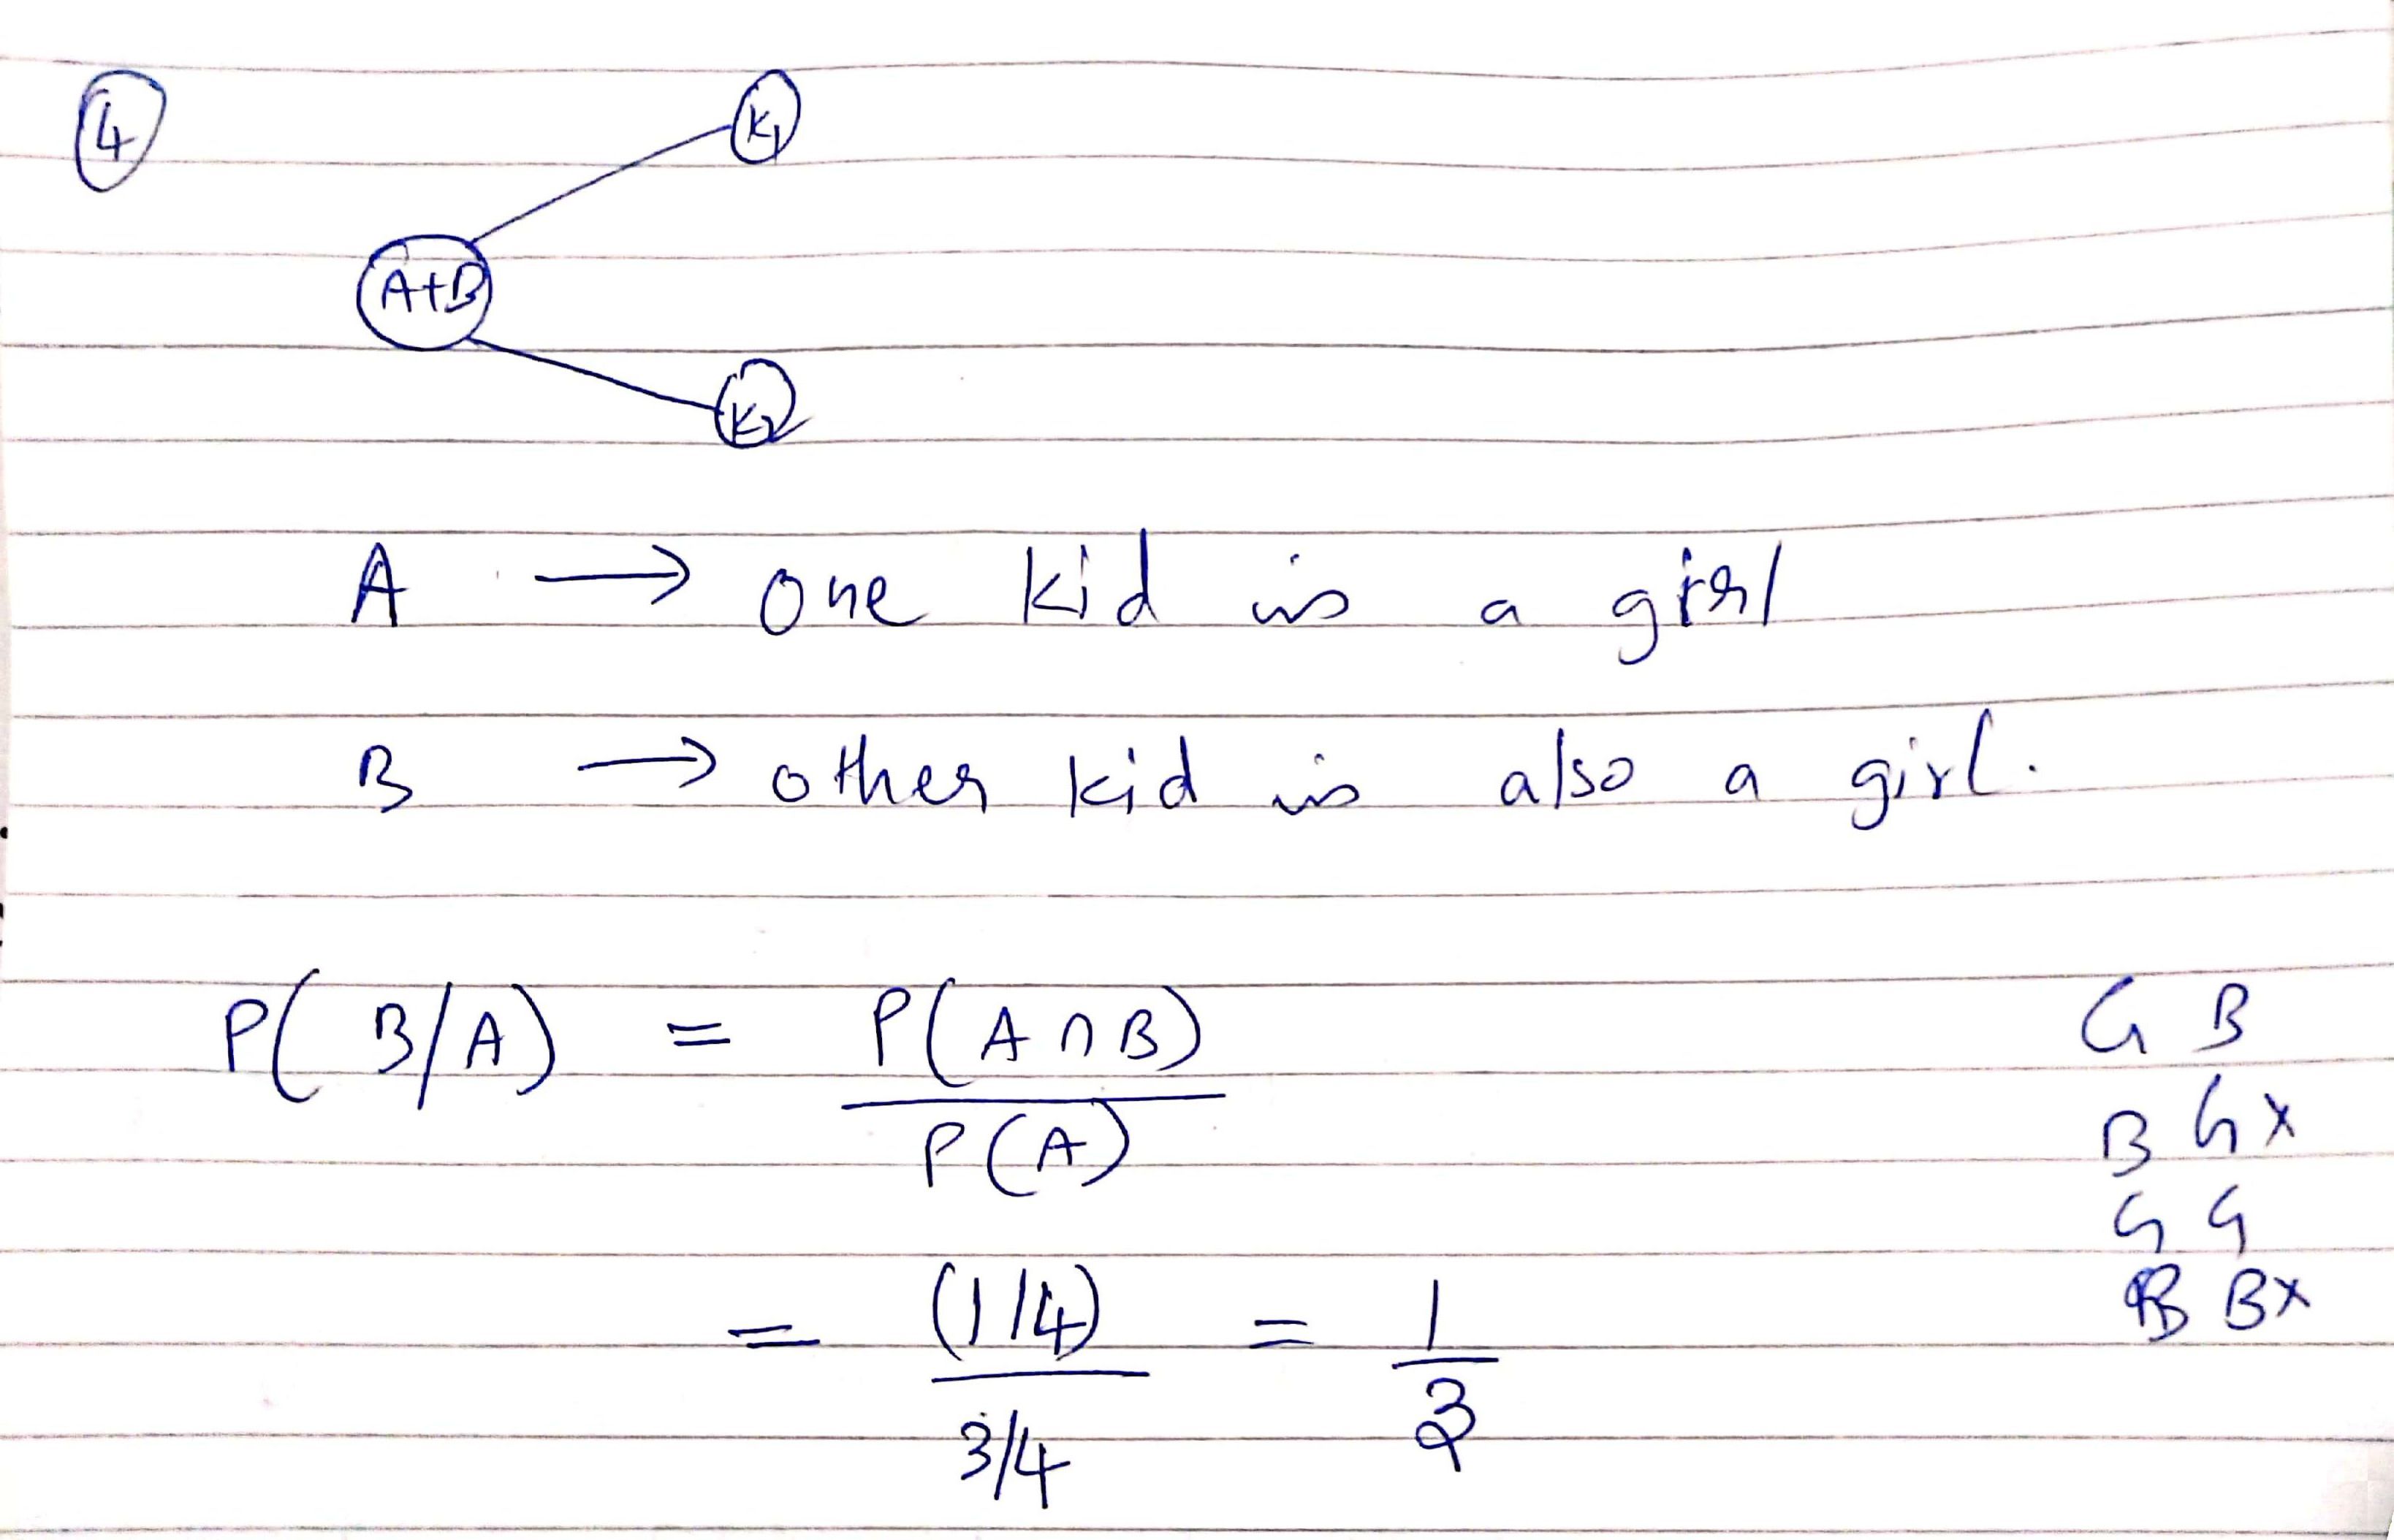 4
K1
A+B
K2
A → One kid is a girl
B → other kid is also a girl.
P( B/A) = P(A∩B)
P(A)
= (1/4) = 1
3/4 3
G B
B G x
G G
B B x